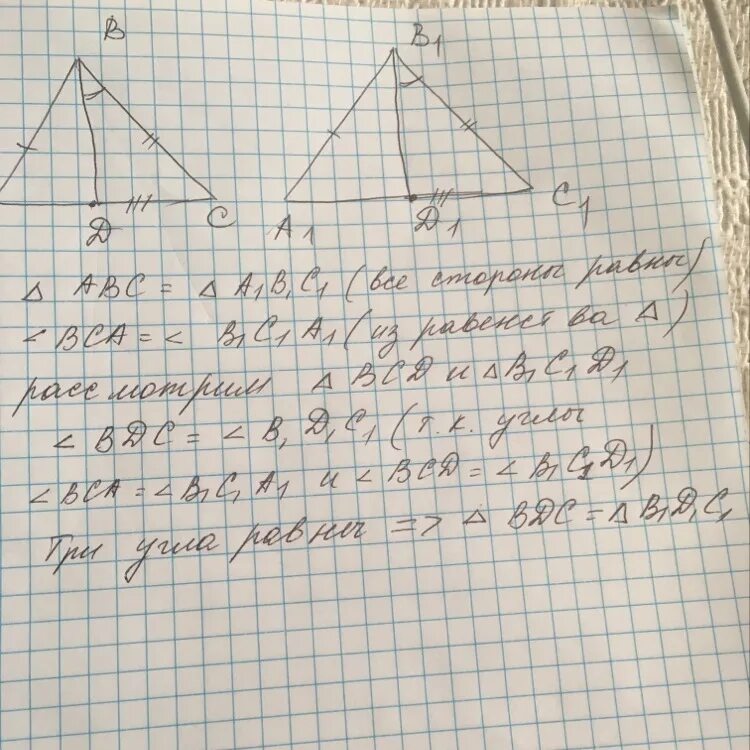 B B1
D C A1 D1 C1
△ ABC = △ A1B1C1 (все стороны равны)
∠ BCA = ∠ B1C1A1 (из равенства △)
рассмотрим △ BCD и △B1C1D1
∠ BDC = ∠ B1D1C1 (т.к. углы
∠BCA = ∠B1C1A1 и ∠ BCD = ∠ B1C1D1)
Три угла равны => △ BDC = △ B1D1C1